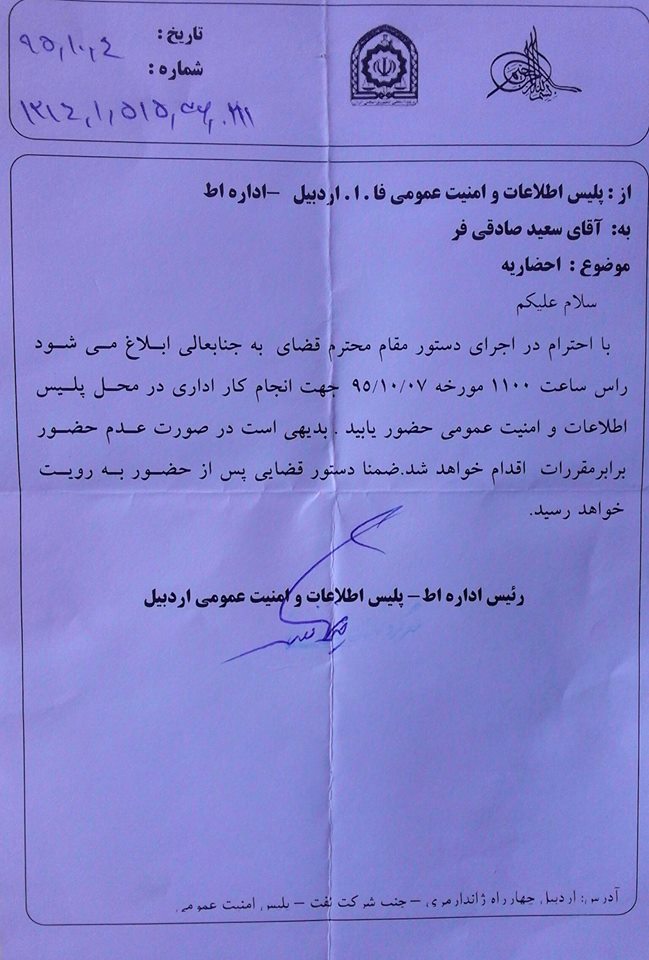 بسم الله الرحمن الرحیم
تاریخ : ۹۵,۱۰,۴
شماره :
از : پلیس اطلاعات و امنیت عمومی فا . ا . اردبیل –اداره اط
به: آقای سعید صادقی فر
موضوع : احضاریه
سلام علیکم
با احترام در اجرای دستور مقام محترم قضای به جنابعالی ابلاغ می شود
راس ساعت ۱۱۰۰ مورخه ۹۵/۱۰/۰۷ جهت انجام کار اداری در محل پلیس
اطلاعات و امنیت عمومی حضور یابید . بدیهی است در صورت عدم حضور
برابرمقررات اقدام خواهد شد.ضمنا دستور قضایی پس از حضور به رویت
خواهد رسید.
رئیس اداره اط– پلیس اطلاعات و امنیت عمومی اردبیل
آدرس: اردبیل چهارراه ژاندارمری – جنب شرکت نفت – پلیس امنیت عمومی